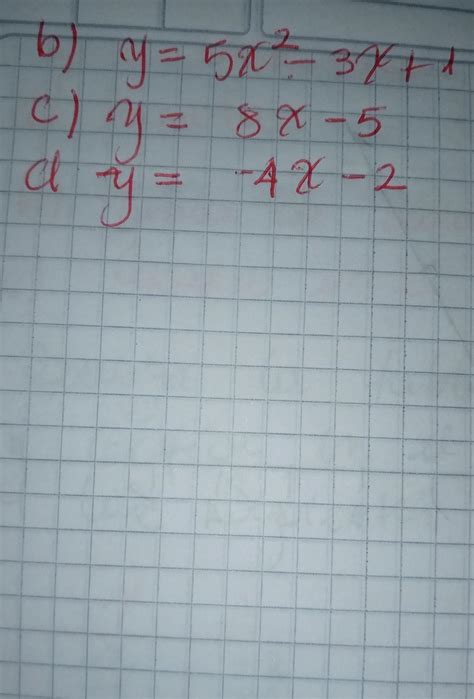 b) y = 5x² - 3x + 1
c) y = 8x - 5
d y = -4x - 2